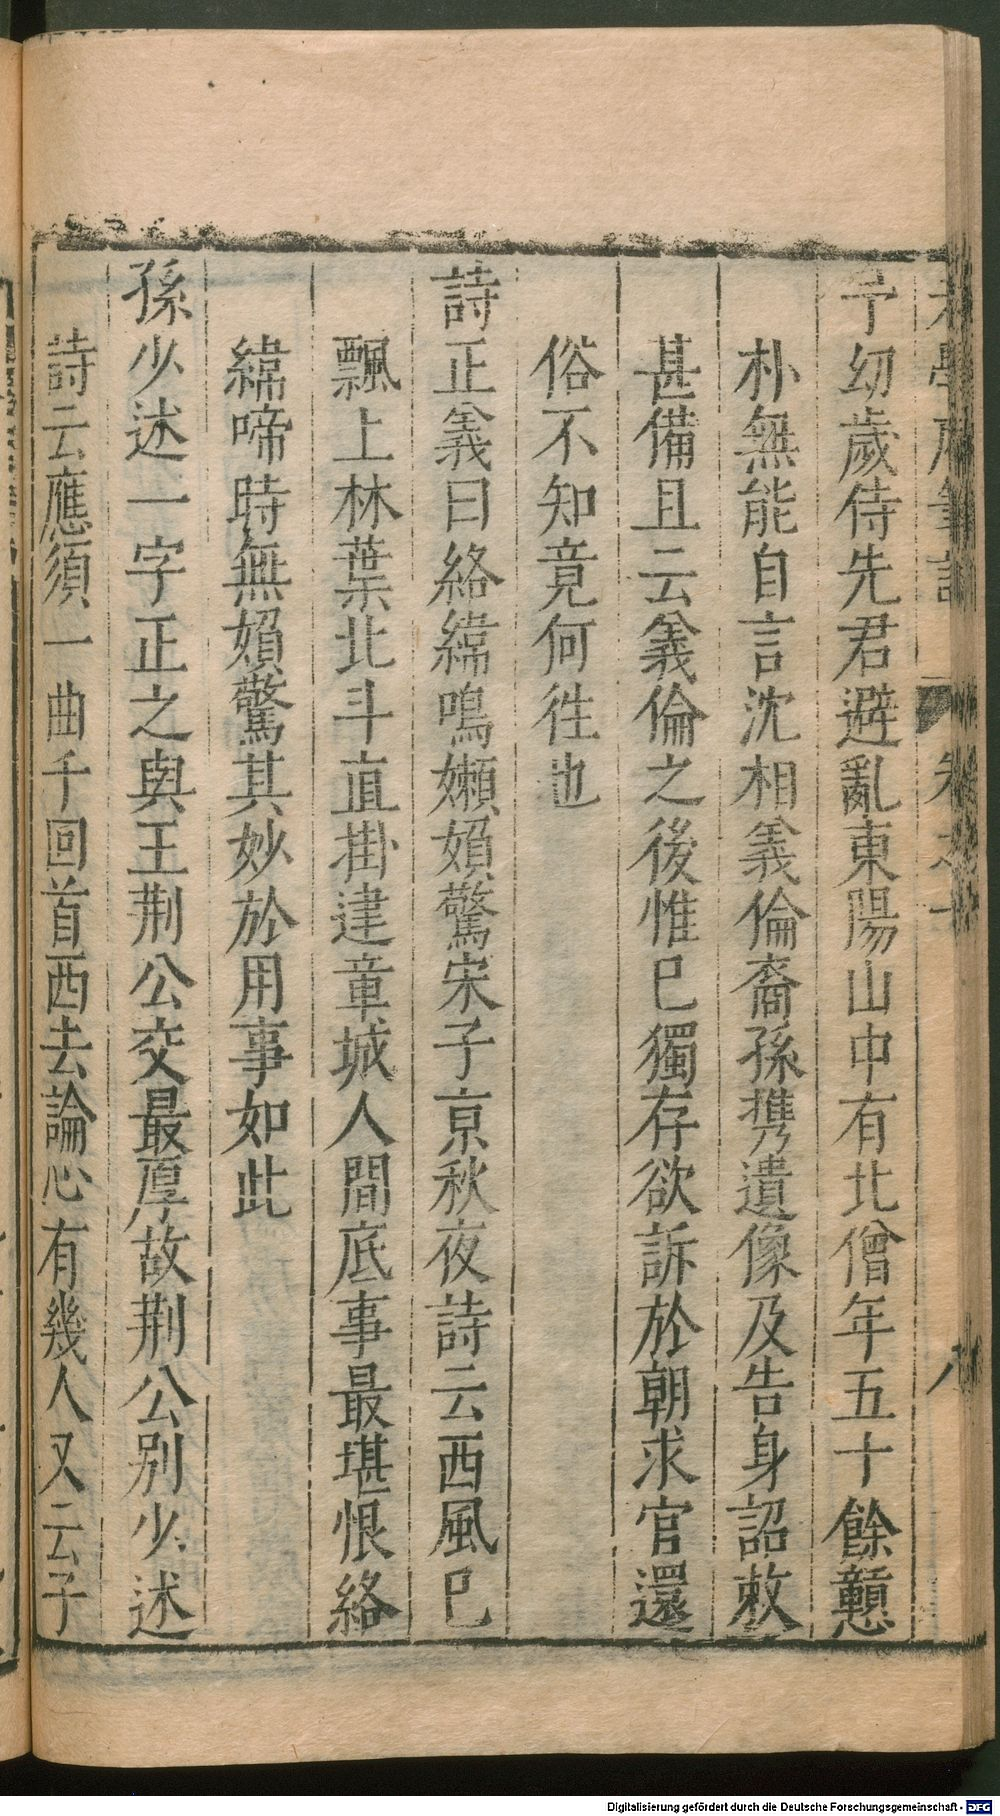 予幼歲侍先君避亂東陽山中有北僧年五十餘戇
朴無能自言沈相義倫裔孫㩦遺像及告身詔敕
甚備且云義倫之後惟已獨存欲訴於朝求官還
俗不知竟何徃也
詩正義曰絡緯鳴嬾婦驚宋子京秋夜詩云西風已
飄上林葉北斗直掛建章城人間底事最堪恨絡
緯啼時無婦驚其妙於用事如此
孫少述一字正之與王荆公交最厚故荆公别少述
詩云應須一曲千回首西去論心有幾人又云子
Digitalisierung gefördert durch die Deutsche Forschungsgemeinschaft - DFG